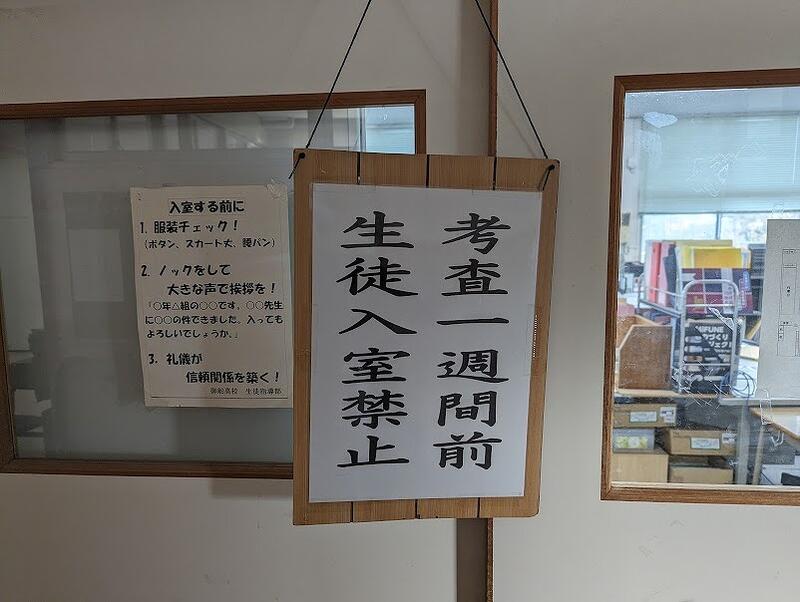 入室する前に
1. 服装チェック！
（ボタン、スカート丈、腰パン）
2. ノックをして
大きな声で挨拶を！
「○年△組の○○です。○○先生
に○○の件できました。入っても
よろしいでしょうか。」
3. 礼儀が
信頼関係を築く！
御船高校　生徒指導部
考査一週間前
生徒入室禁止